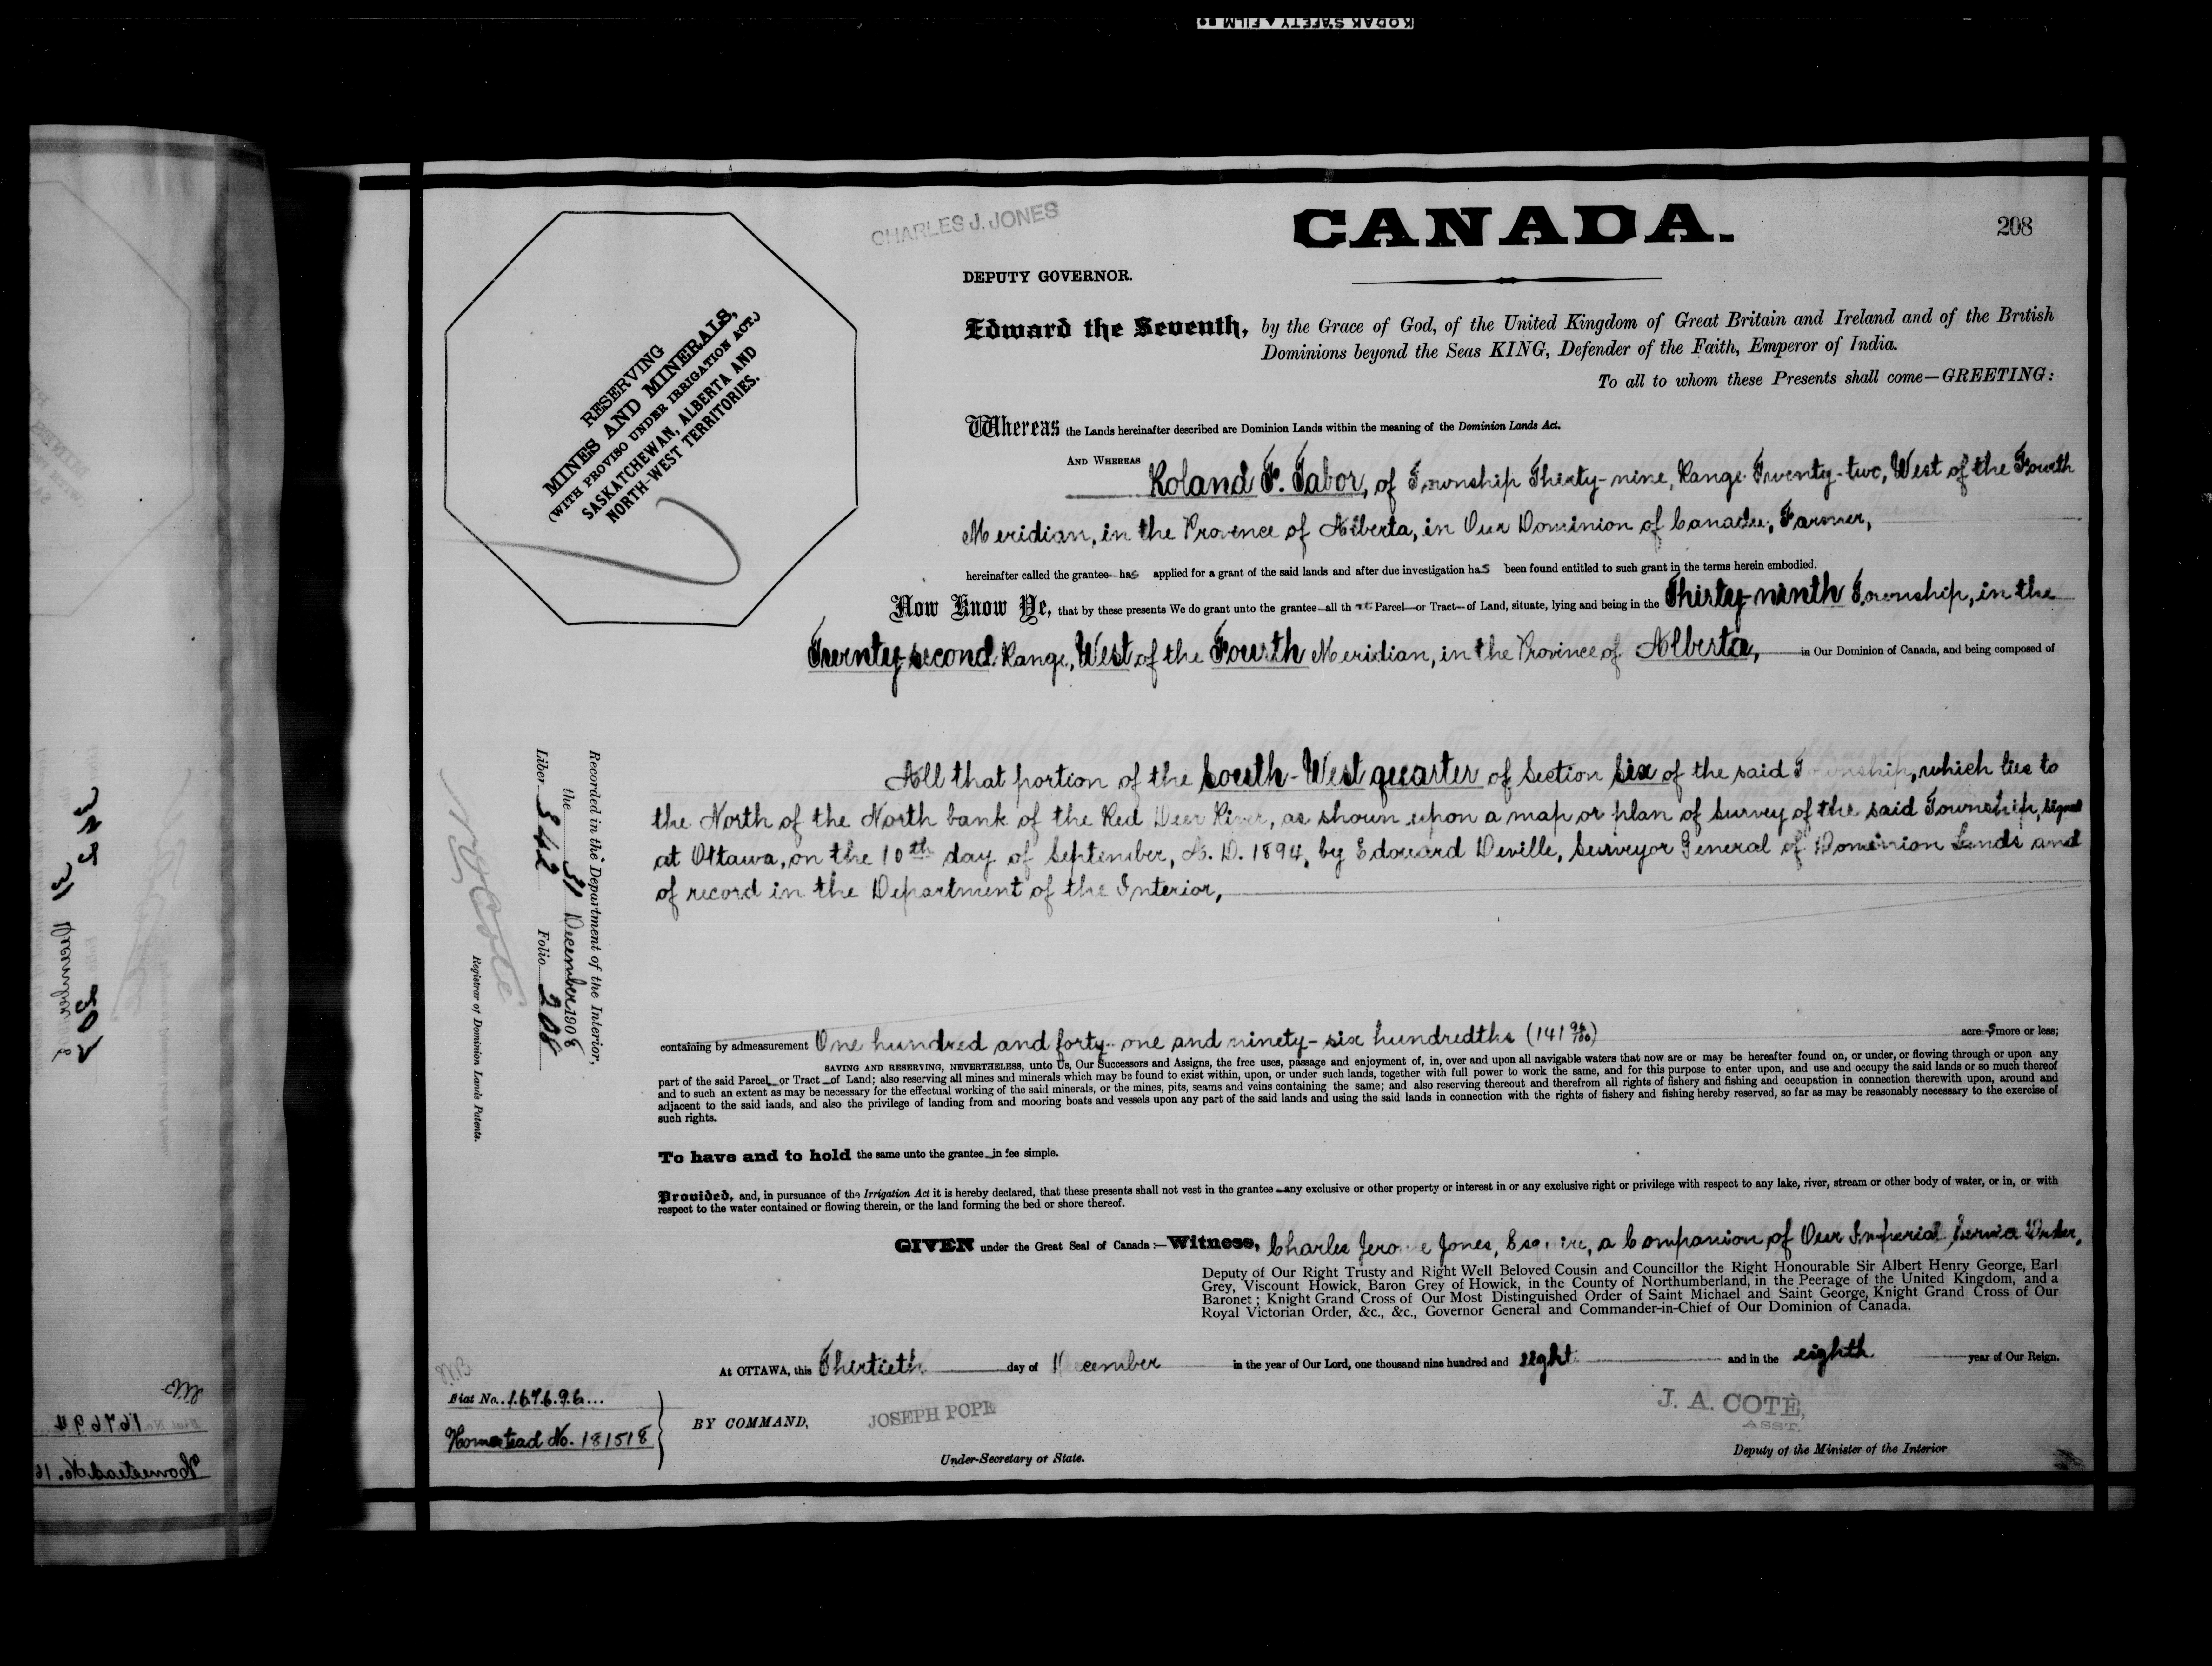 KODAK SAFETY FILM
CHARLES J. JONES
CANADA.
208
DEPUTY GOVERNOR.
RESERVING
MINES AND MINERALS,
(WITH PROVISO UNDER IRRIGATION ACT.)
SASKATCHEWAN, ALBERTA AND
NORTH-WEST TERRITORIES.
Edward the Seventh, by the Grace of God, of the United Kingdom of Great Britain and Ireland and of the British
Dominions beyond the Seas KING, Defender of the Faith, Emperor of India.
To all to whom these Presents shall come—GREETING:
Whereas the Lands hereinafter described are Dominion Lands within the meaning of the Dominion Lands Act.
AND WHEREAS Roland F. Tabor, of Township Thirty-nine, Range Twenty-two, West of the Fourth
Meridian, in the Province of Alberta, in Our Dominion of Canada, Farmer,
hereinafter called the grantee has applied for a grant of the said lands and after due investigation has been found entitled to such grant in the terms herein embodied.
Now Know Ye, that by these presents We do grant unto the grantee—all that Parcel—or Tract—of Land, situate, lying and being in the Thirty-ninth Township, in the
Twenty-second Range, West of the Fourth Meridian, in the Province of Alberta, in Our Dominion of Canada, and being composed of
All that portion of the South-West quarter of Section Six of the said Township, which lies to
the North of the North bank of the Red Deer River, as shown upon a map or plan of survey of the said Township, signed
at Ottawa, on the 10th day of September, A. D. 1894, by Edouard Deville, Surveyor General of Dominion Lands and
of record in the Department of the Interior,
containing by admeasurement One hundred and forty-one and ninety-six hundredths (141 96/100) acres more or less;
SAVING AND RESERVING, NEVERTHELESS, unto Us, Our Successors and Assigns, the free uses, passage and enjoyment of, in, over and upon all navigable waters that now are or may be hereafter found on, or under, or flowing through or upon any
part of the said Parcel or Tract of Land; also reserving all mines and minerals which may be found to exist within, upon, or under such lands, together with full power to work the same, and for this purpose to enter upon, and use and occupy the said lands or so much thereof
and to such an extent as may be necessary for the effectual working of the said minerals, or the mines, pits, seams and veins containing the same; and also reserving thereout and therefrom all rights of fishery and fishing and occupation in connection therewith upon, around and
adjacent to the said lands, and also the privilege of landing from and mooring boats and vessels upon any part of the said lands and using the said lands in connection with the rights of fishery and fishing hereby reserved, so far as may be reasonably necessary to the exercise of
such rights.
To have and to hold the same unto the grantee in fee simple.
Provided, and, in pursuance of the Irrigation Act it is hereby declared, that these presents shall not vest in the grantee any exclusive or other property or interest in or any exclusive right or privilege with respect to any lake, river, stream or other body of water, or in, or with
respect to the water contained or flowing therein, or the land forming the bed or shore thereof.
GIVEN under the Great Seal of Canada:—Witness, Charles Jerome Jones, Esquire, a Companion of Our Imperial Service Order,
Deputy of Our Right Trusty and Right Well Beloved Cousin and Councillor the Right Honourable Sir Albert Henry George, Earl
Grey, Viscount Howick, Baron Grey of Howick, in the County of Northumberland, in the Peerage of the United Kingdom, and a
Baronet; Knight Grand Cross of Our Most Distinguished Order of Saint Michael and Saint George, Knight Grand Cross of Our
Royal Victorian Order, &c., &c., Governor General and Commander-in-Chief of Our Dominion of Canada.
At OTTAWA, this Thirtieth day of December in the year of Our Lord, one thousand nine hundred and eight and in the eighth year of Our Reign.
Fiat No. 167696
Homestead No. 181518
BY COMMAND,
JOSEPH POPE
Under-Secretary of State.
J. A. COTÉ,
ASST.
Deputy of the Minister of the Interior
Recorded in the Department of the Interior,
the 31 December 1908
Liber 542 Folio 208
N. O. Coté
Registrar of Dominion Lands Patents.